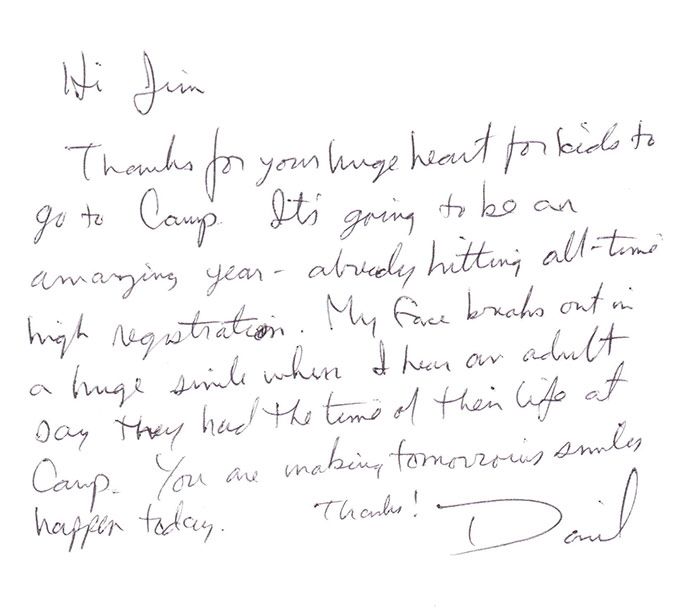 Hi Jim
Thanks for your huge heart for kids to
go to Camp. It's going to be an
amazing year - already hitting all-time
high registration. My face breaks out in
a huge smile when I hear an adult
say they had the time of their life at
Camp. You are making tomorrows smiles
happen today. Thanks! David